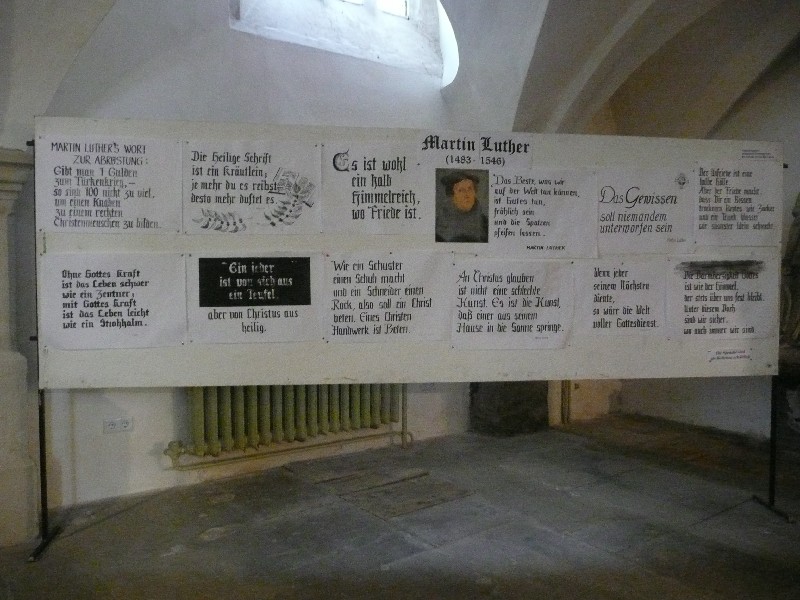 MARTIN LUTHER'S WORT
ZUR ABRÜSTUNG:
Gibt man 1 Gulden
zum Türkenkrieg,-
So sind 100 nicht zu viel,
um einen Knaben
zu einem rechten
Christenmenschen zu bilden.
Die Heilige Schrift
ist ein Kräutlein;
je mehr du es reibst
desto mehr duftet es.
Es ist wohl
ein halb
Himmelreich,
wo Friede ist.
Martin Luther
(1483 - 1546)
"Das Beste, was wir
auf der Welt tun können,
ist Gutes tun,
fröhlich sein
und die Spatzen
pfeifen lassen."
MARTIN LUTHER
Das Gewissen
soll niemandem
unterworfen sein
Der Unfriede ist eine
halbe Hölle.
Aber der Friede macht,
dass Dir ein Bissen
trockenen Brotes wie Zucker
und ein Trunk Wasser
wie
Ohne Gottes Kraft
ist das Leben schwer
wie ein Zentner;
mit Gottes Kraft
ist das Leben leicht
wie ein Strohhalm.
"Ein jeder
ist von sich aus
ein Teufel,
aber von Christus aus
heilig.
Wie ein Schuster
einen Schuh macht
und ein Schneider einen
Rock, also soll ein Christ
beten. Eines Christen
Handwerk ist Beten.
An Christus glauben
ist nicht eine schlechte
Kunst. Es ist die Kunst,
daß einer aus seinem
Hause in die Sonne springe.
Wenn jeder
seinem Nächsten
diente,
so wäre die Welt
voller Gottesdienst.
Die Barmherzigkeit Gottes
ist wie der Himmel,
der stets über uns fest bleibt.
Unter diesem Dach
sind wir sicher,
wo auch immer wir sind.